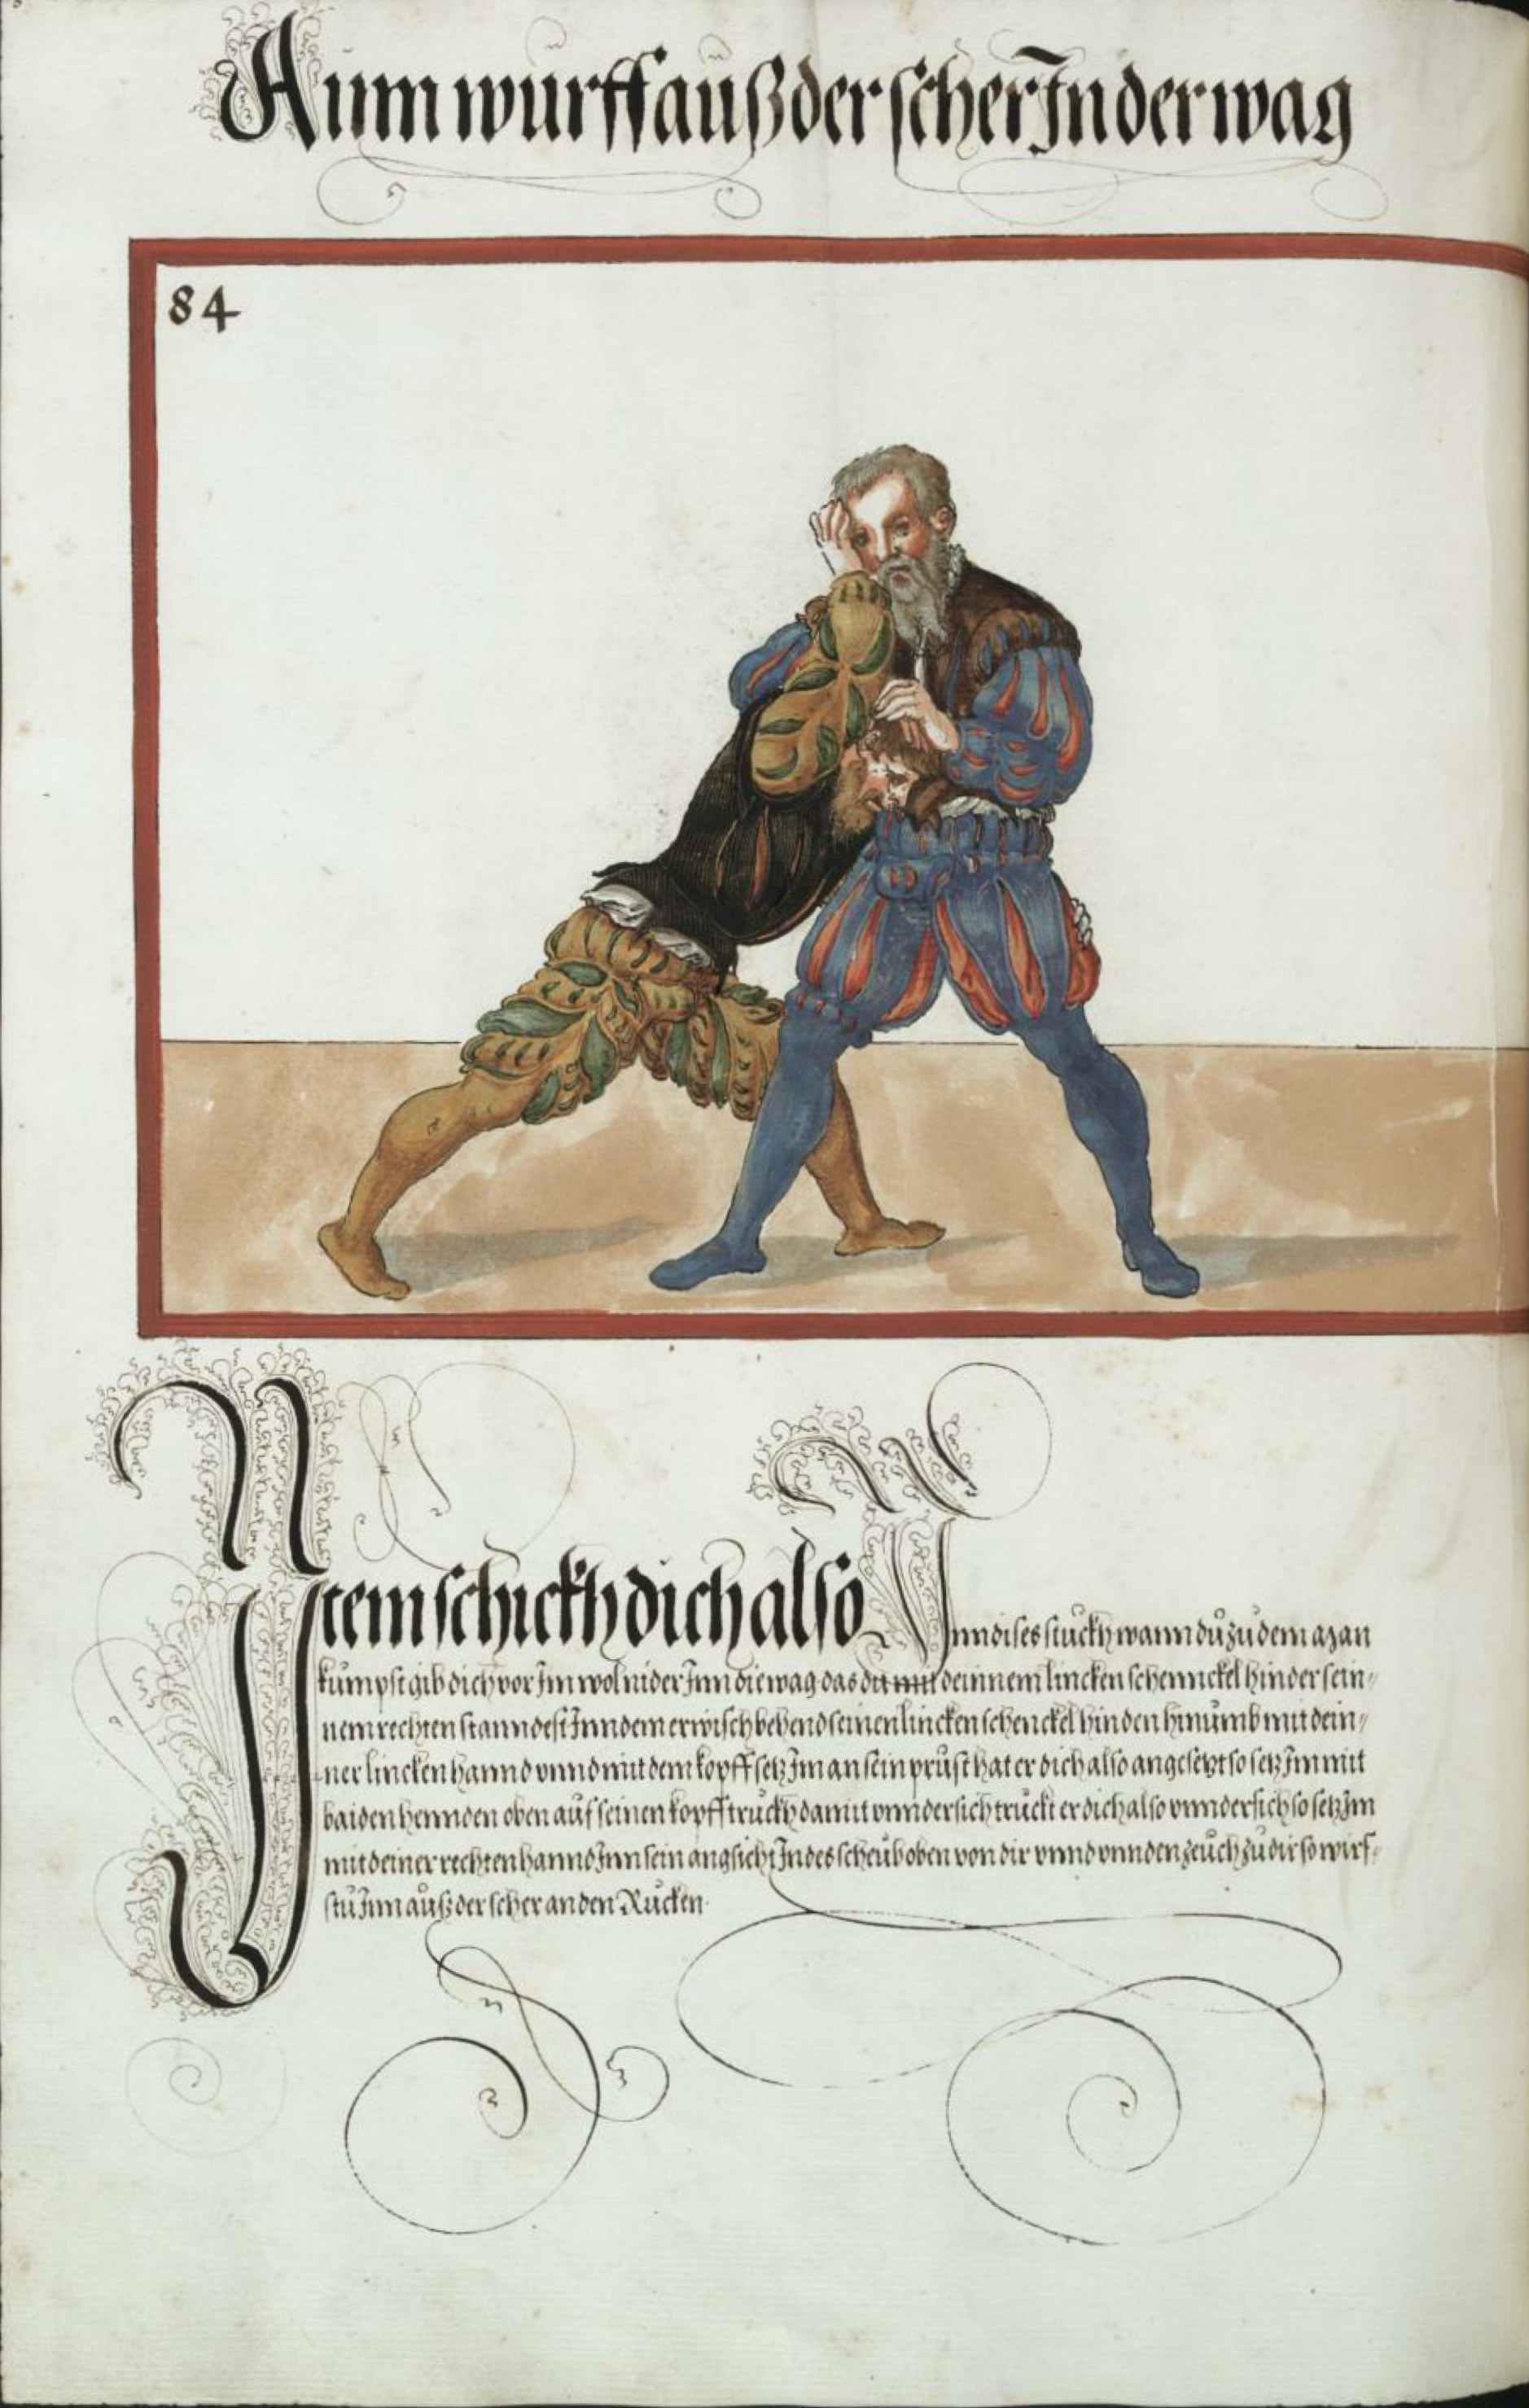 Ainn wurff auß der scher Inn der wag
84
Item schickh dich also Inn dises stuckh wann du zu dem man
kumpst gib dich vor Im wol nider Inn die wag das du mit deinnem lincken schennckel hinder sein-
nem rechten stanndest Inn dem erwisch behend seinen lincken schenckel hinden hinumb mit dein-
ner lincken hannd vnnd mit dem kopff setz Im an sein prust hat er dich also angesetzt so setz Im mit
baiden hennden oben auf seinen kopff truckh damit vnndersich truckt er dich also vnndersich so setz Im
mit deiner rechten hannd Inn sein angsicht Indes scheub oben von dir vnnd vnnden zeuch zu dir so wirf-
stu Inn auß der scher an den Rucken